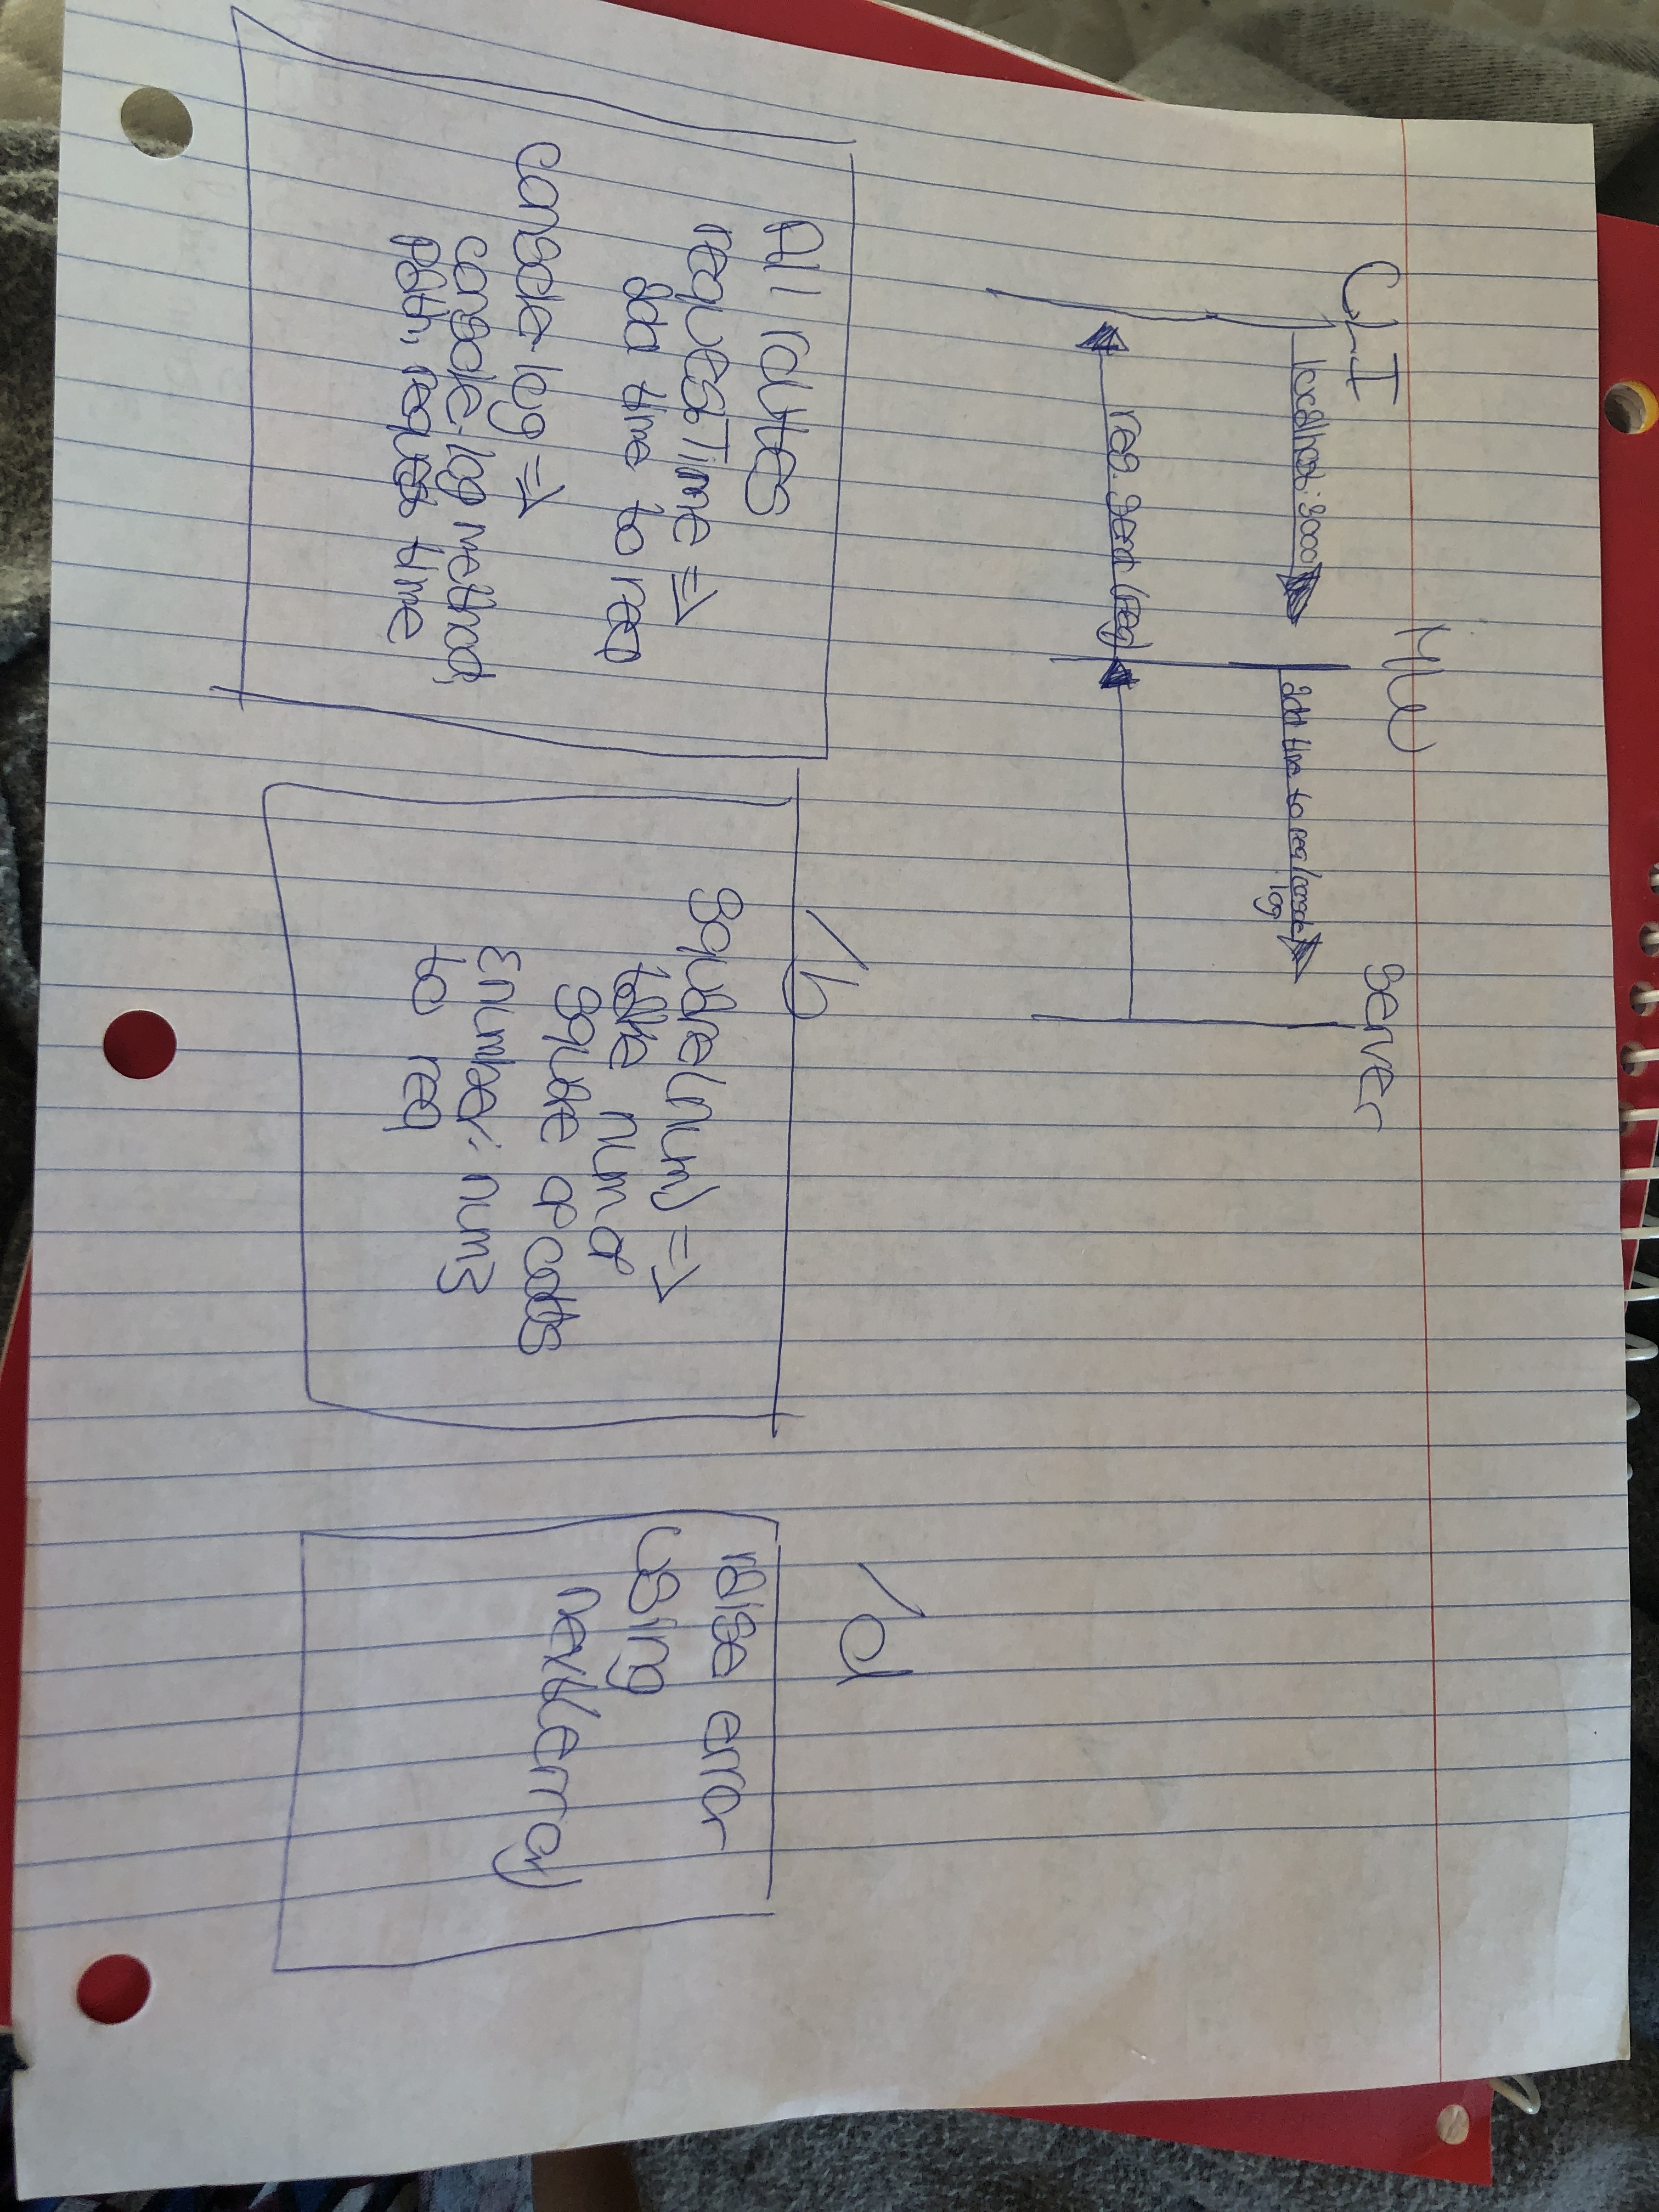 CLI MW server
localhost:3000
add time to req/console
log
res.send(req)
All routes
requestTime =>
add time to req
console-log =>
console-log method,
path, request time
/b
square(num) =>
take num or
square of
{number: num}
to req
/d
raise error
using
next(error)